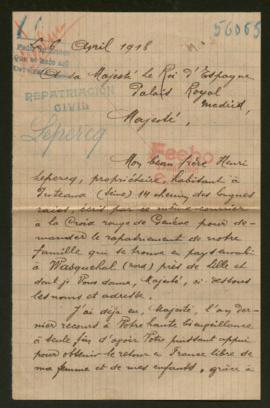 56065
6 Avril 1918
A sa Majesté Le Roi d'Espagne
Palais Royal
Madrid
REPATRIACIÓN
CIVIL
Lepercq
Majesté,
Mon beau frère Henri
Lepercq, propriétaire, habitant à
Puteaux (Seine) 14 chemin des longues
raies, écrit par ce même courrier
à la Croix rouge de Genève pour de-
mander le rapatriement de notre
famille qui se trouve en pays envahi
à Wasquehal (nord) près de Lille et
dont je vous donne, Majesté, ci dessous
les noms et adresse.
J'ai déjà eu, Majesté, l'an der-
nier recours à Votre haute bienveillance
à seule fin d'avoir Votre puissant appui
pour obtenir le retour en France libre de
ma femme et de mes enfants, grâce à